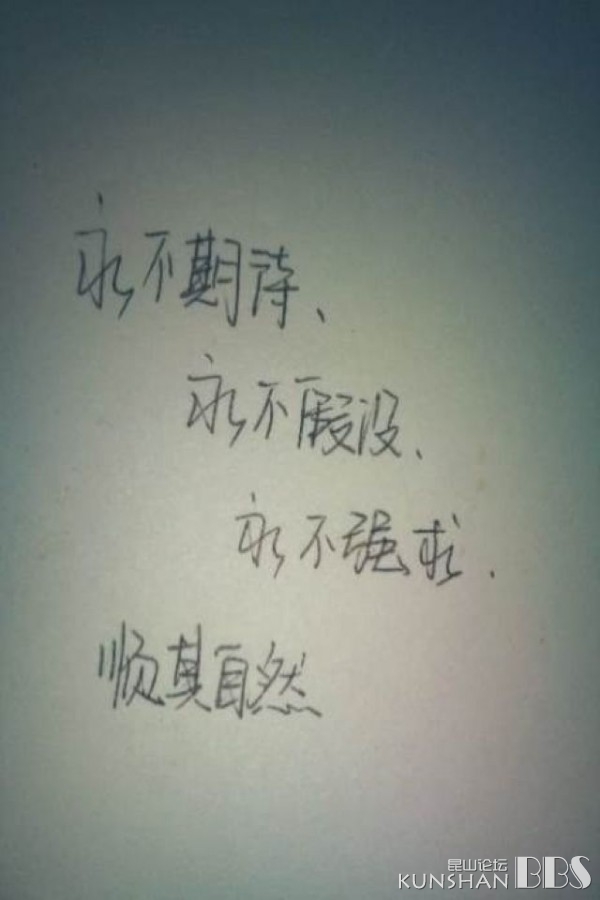 永不期待、
永不假设、
永不强求.
顺其自然
昆山论坛
KUNSHAN BBS